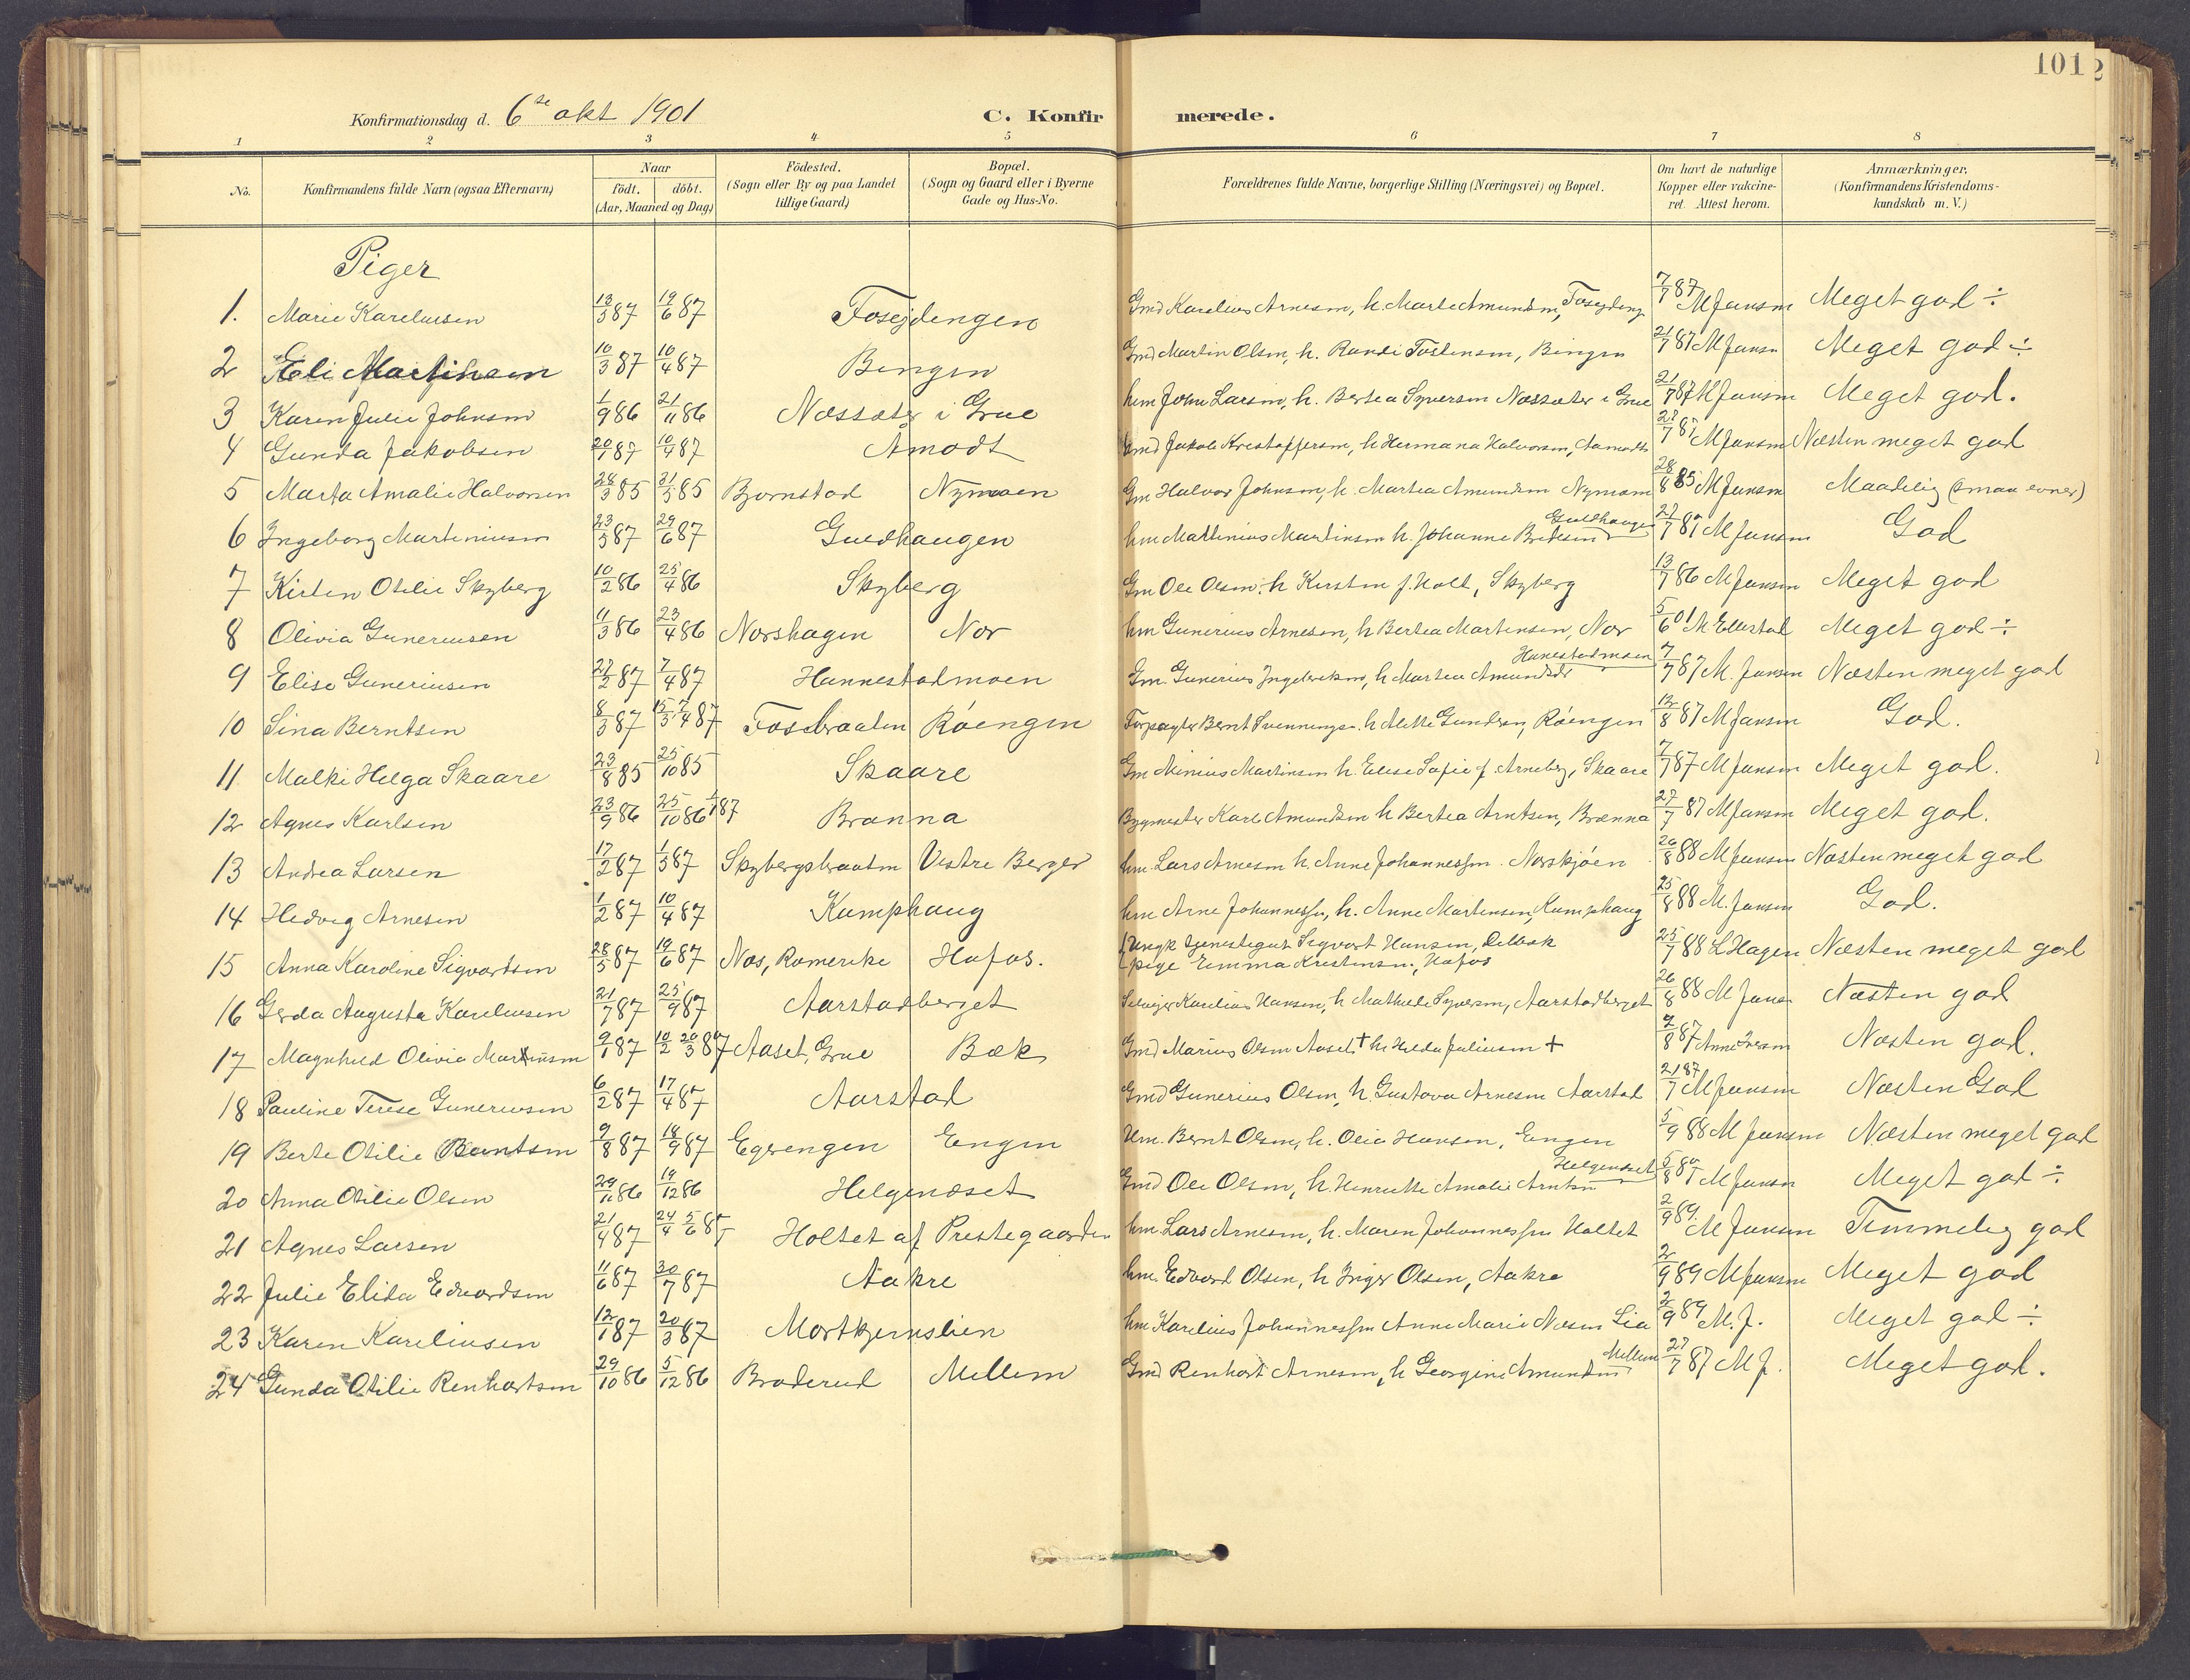 101
Konfirmationsdag d. 6te okt 1901
C. Konfirmerede.
1 2 3 4 5 6 7 8
No. Konfirmandens fulde Navn (ogsaa Efternavn) Naar födt. döbt. (Aar, Maaned og Dag) Födested. (Sogn eller By og paa Landet tillige Gaard) Bopæl. (Sogn og Gaard eller i Byerne Gade og Hus-No. Forældrenes fulde Navne, borgerlige Stilling (Næringsvei) og Bopæl. Om havt de naturlige Kopper eller vakcineret. Attest herom. Anmærkninger. (Konfirmandens Kristendomskundskab m. V.)
Piger
1. Marie Kareliussen 13/3 87 19/6 87 Fosejdengen Gmd Karelius Arnesen, h. Marte Amundsen, 7/7 87 M Jansen Meget god ÷
2 Eli Martinsen 10/3 87 10/4 87 Bingen Gmd Martin Olsen, h. Randi Tostensen, Bingen 21/7 87 M Jansen Meget god ÷
3 Karen Julie Johnsen 1/9 86 21/11 86 Næssæter i Grue hm John Larsen, h. Bertea Syversen Næssæter i Grue 21/7 87 M Jansen Meget god.
4 Gunda Jakobsen 20/1 87 10/4 87 Amodt Gmd Jakob Kristoffersen, h Hermana Halvorsen, Aamodt M Jansen Næsten meget god
5 Marta Amalie Halvorsen 28/3 85 31/5 85 Bjornstad Nymoen Gm Halvor Johnsen, h. Martea Amundsen Nymoen 28/8 85 M Jansen Maadelig (smaa evner)
6 Ingeborg Martiniusen 23/5 87 29/6 87 Guldhaugen hm Martinius Martinsen h. Johanne Bredesen Guldhaugen 27/7 87 M Jansen God
7 Kirsten Otilie Skyberg 10/2 86 25/4 86 Skyberg Gm Ole Olsen, h Kirsten f. Holt, Skyberg 13/7 86 M Jansen Meget god
8 Olivia Guneriusen 11/3 86 23/4 86 Norshagen Nor hm Gunerius Arnesen, h Bertea Martinsen, Nor 5/6 01 M Ellestad Meget god ÷
9 Elise Guneriusen 27/2 87 7/4 87 Hannestadmoen Gm. Gunerius Ingebretsen, h Martea Amundsdr Hanestadmoen 7/7 87 M. Jansen Næsten meget god
10 Lina Berntsen 8/3 87 15/3 7/4 87 Fosbraaten Röengen Forpagter Bernt Svennings. h Alette Gundersen, Röengen 12/8 87 M Jansen God.
11 Malki Helga Skaare 23/8 85 25/10 85 Skaare Gm Minius Martinsen h. Elise Sofie f. Arneberg, Skaare 7/7 87 M Jansen Meget god.
12 Agnes Karlsen 23/9 86 25/10 86 1/1 87 Brænna Bygmester Karl Amundsen h Bertea Arntsen, Brænna 27/7 87 M Jansen Meget god.
13 Andrea Larsen 17/2 87 1/5 87 Skybergsbraaten Vestre Berger hm. Lars Arnesen h. Anne Johannessen. Norskjöen 26/8 88 M Jansen Næsten meget god
14 Hedvig Arnesen 1/2 87 10/4 87 Kamphaug hm Arne Johannessen, h. Anne Martinsen, Kamphaug 25/8 88 M. Jansen God.
15 Anna Karoline Sigvartsen 28/5 87 19/6 87 Næs, Romerike Hofos. Ungk tjenestegut Sigvart Hansen,
pige Emma Kristensen, Hofos 25/7 88 L Hagen Næsten meget god
16 Gerda Augusta Kareliusen 21/7 87 25/9 87 Aarstadberget Selveier Karelius Hansen, h Mathilde Syversen, Aarstadberget 26/8 88 M Jansen Næsten god
17 Magnhild Olivia Martinsen 9/1 87 10/2 20/3 87 Aaset, Grue Bæk Gmd Marius Olsen Aaset † h Hilda Juliusen † 9/8 87 Anne Iversen Næsten god.
18 Pauline Terese Guneriusen 6/2 87 17/4 87 Aarstad Gmd Gunerius Olsen, h. Gustava Arnesen Aarstad 21/7 87 M Jansen Næsten God
19 Berte Otilie Berntsen 9/8 87 18/9 87 Egerengen Engen Hm. Bernt Olsen, h. Olia Hansen, Engen 5/9 88 M Jansen Næsten meget god
20 Anna Otilie Olsen 29/11 86 19/12 86 Helgenæset Gmd Ole Olsen, h. Henriette Amalie Arntsen Helgenæset 5/8 87 M Jansen Meget god ÷
21 Agnes Larsen 21/4 87 24/4 5/6 87 Holtet af Prestegaarden hm. Lars Arnesen, h. Maren Johannessen Holtet 2/9 89. M Jansen Temmelig god
22 Julie Elida Edvardsen 11/6 87 30/7 87 Aakre hm. Edvard Olsen, h Inger Olsen, Aakre 2/9 89 M Jansen Meget god
23 Karen Kareliusen 12/1 87 20/3 87 Mortkjernslien hm Karelius Johannessen Anne Marie Lia 2/9 89 M. J. Meget god ÷
24 Gunda Otilie Renhartsen 29/10 86 5/12 86 Braderud Mellem Gmd Renhart Arnesen, h Georgine Amundsen Mellem 27/7 87 M J. Meget god.